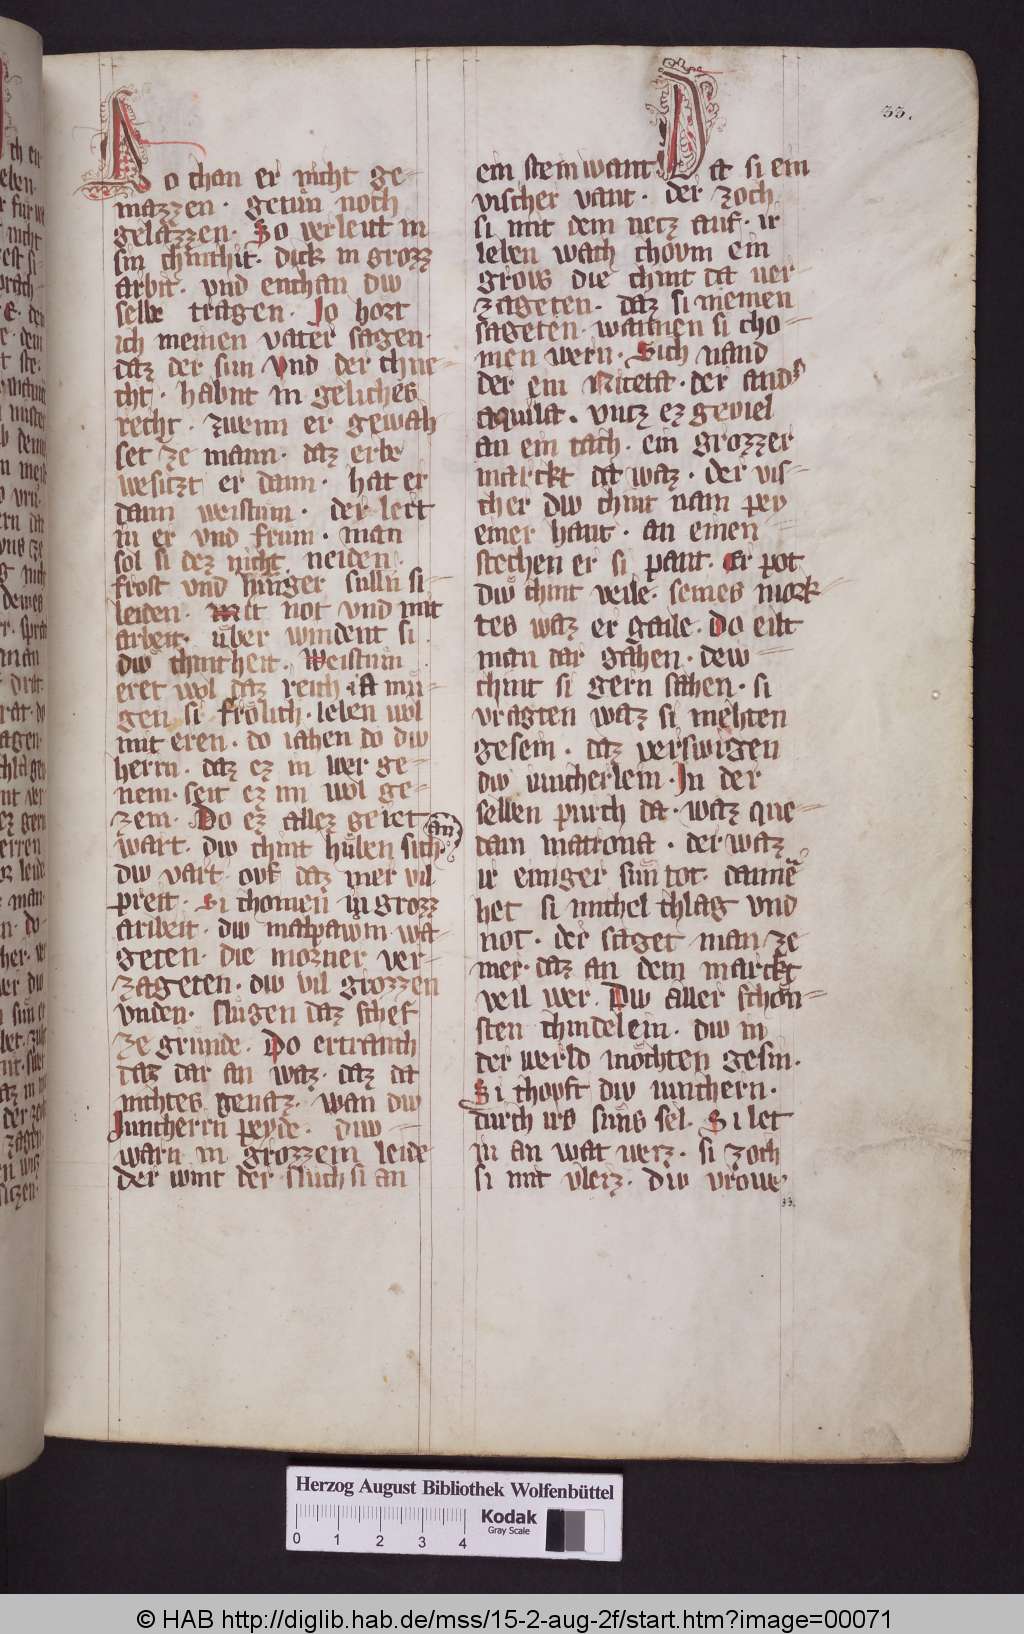 33.
So chan er nicht ge-
mazzen · getun noch
gelazzen · So verleitt in
sin chinthit · dick in grozz
arbit · vnd enchan div
selbe tragen · Jo hort
ich meinen vater sagen ·
daz der sun vnd der chne-
cht · habnt in geliches
recht · zwenn er gewah
set ze mann · daz erbe
wesitzt er dann · hat er
dann weistum · der lert
in er vnd frum · man
sol si dez nicht neiden ·
frost vnd hunger sulln si
leiden · Mit not vnd mit
arbeit · uber windent si
div chintheit · Weistum
eret wol daz reich · sa mu-
gen si frölich · leben wol
mit eren · do iahen do div
herrn · daz ez in wer ge-
nem · seit ez im wol ge-
zem · Do ez allez geriet an
wart · div chint hüben sich ·
div vart · ovf daz mer vil
preit · Si chomen in grozz
aribeit · div malpawm wa-
geten · die morner ver-
zageten · div vil grozzen
vnden · slugen daz schef
ze grunde · Do ertranch
daz dar an waz · daz da
nichtes genaz · wan div
Juncherrn peyde · div
warn in grozzem leide
der wint der sluch si an
ein stein want · Da si ein
vischer vant · der zoch
si mit dem netz auf · ir
leben wach chovm ein
grovs die chint da ver-
zageten · daz si niemen
sageten · wannen si cho-
men wern · Sich nand
der ein Niceta · der ands
aquila · vntz ez geviel
an ein tach · ein grozzer
marckt da waz · der vis-
cher div chint nam pey
einer hant · an einen
stechen er si pant · Er pot
div chint veile · seines mork-
tes waz er gaile · Do eilt
man dar gahen · dew
chint si gern sahen · si
vragten waz si mehten
gesein · daz verswigen
div iuncherlein · Jn der
selben purch da · waz que-
dam matrona · der waz
ir einiger sun tot · darinne
het si michel chlag vnd
not · der saget man ze
mer · daz an dem marckt
veil wer · Div aller schön-
sten chindelein · div in
der werld möchten gesin ·
Si chopft div iunchern ·
durch irs suns sel · Si let
in an wat werz · si zoch
si mit vleiz · div vrowe
33.
Herzog August Bibliothek Wolfenbüttel
0 1 2 3 4
Kodak
Gray Scale
© HAB http://diglib.hab.de/mss/15-2-aug-2f/start.htm?image=00071